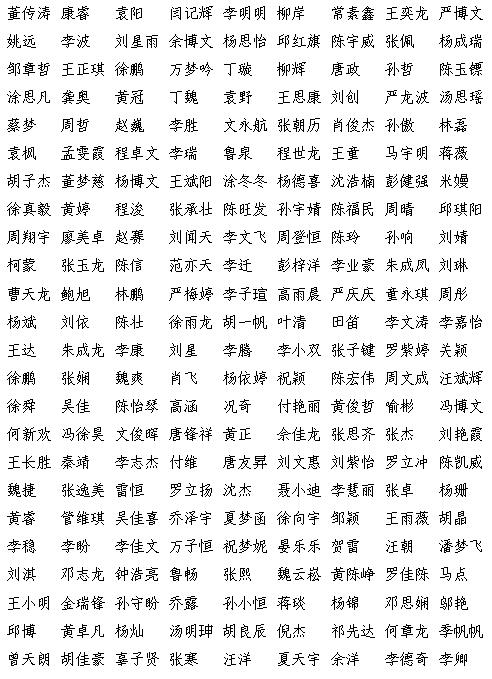 董传涛 康睿 袁阳 闫记辉 李明明 柳岸 常素鑫 王奕龙 严博文
姚远 李波 刘星雨 余博文 杨思怡 邱红旗 陈宇威 张佩 杨成瑞
邹章哲 王正琪 徐鹏 万梦吟 丁璇 柳辉 唐政 孙哲 陈玉镖
涂思凡 龚奥 黄冠 丁魏 袁野 王思康 刘创 严龙波 汤思瑶
蔡梦 周哲 赵巍 李胜 文永航 张朝历 肖俊杰 孙傲 林磊
袁枫 孟雯霞 程卓文 李瑞 鲁泉 程世龙 王童 马宇明 蒋薇
胡子杰 董梦慈 杨博文 王斌阳 涂冬冬 杨德喜 沈浩楠 彭健强 米嫚
徐真毅 黄婷 程浚 张承壮 陈旺发 孙宇婧 陈福民 周晴 邱琪阳
周翔宇 廖美卓 赵赛 刘闻天 李文飞 周登恒 陈玲 孙响 刘婧
柯蒙 张玉龙 陈信 范亦天 李迁 彭梓洋 李业豪 朱成凤 刘琳
曹天龙 鲍旭 林鹏 严梅婷 李子瑄 高雨晨 严庆庆 童永琪 周彤
杨斌 刘依 陈壮 徐雨龙 胡一帆 叶清 田笛 李文涛 李嘉怡
王达 朱成龙 李康 刘星 李腾 李小双 张子键 罗紫婷 关颖
徐鹏 张娴 魏爽 肖飞 杨依婷 祝颖 陈宏伟 周文成 汪斌辉
徐舜 吴佳 陈怡琴 高涵 况奇 付艳丽 黄俊哲 喻彬 冯博文
何新欢 冯徐昊 文俊晖 唐锋祥 黄正 佘佳龙 张思齐 张杰 刘艳霞
王长胜 秦靖 李志杰 付维 唐友昇 刘文惠 刘紫怡 罗立冲 陈凯威
魏捷 张逸美 雷恒 罗立扬 沈杰 聂小迪 李慧丽 张卓 杨珊
黄睿 管维琪 吴佳喜 乔泽宇 夏梦函 徐向宇 邹颖 王雨薇 胡晶
李稳 李盼 李佳文 万子恒 祝梦妮 晏乐乐 贺雷 汪朝 潘梦飞
刘淇 邓志龙 钟浩亮 鲁畅 张熙 魏云崧 黄陈峥 罗佳陈 马点
王小明 金瑞锋 孙守盼 乔露 孙小恒 蒋琰 杨锦 邓思娴 邬艳
邱博 黄卓凡 杨灿 汤明珅 胡良辰 倪杰 祁先达 何章龙 季帆帆
曾天朗 胡佳豪 辜子贤 张寒 汪洋 夏天宇 余洋 李德奇 李卿